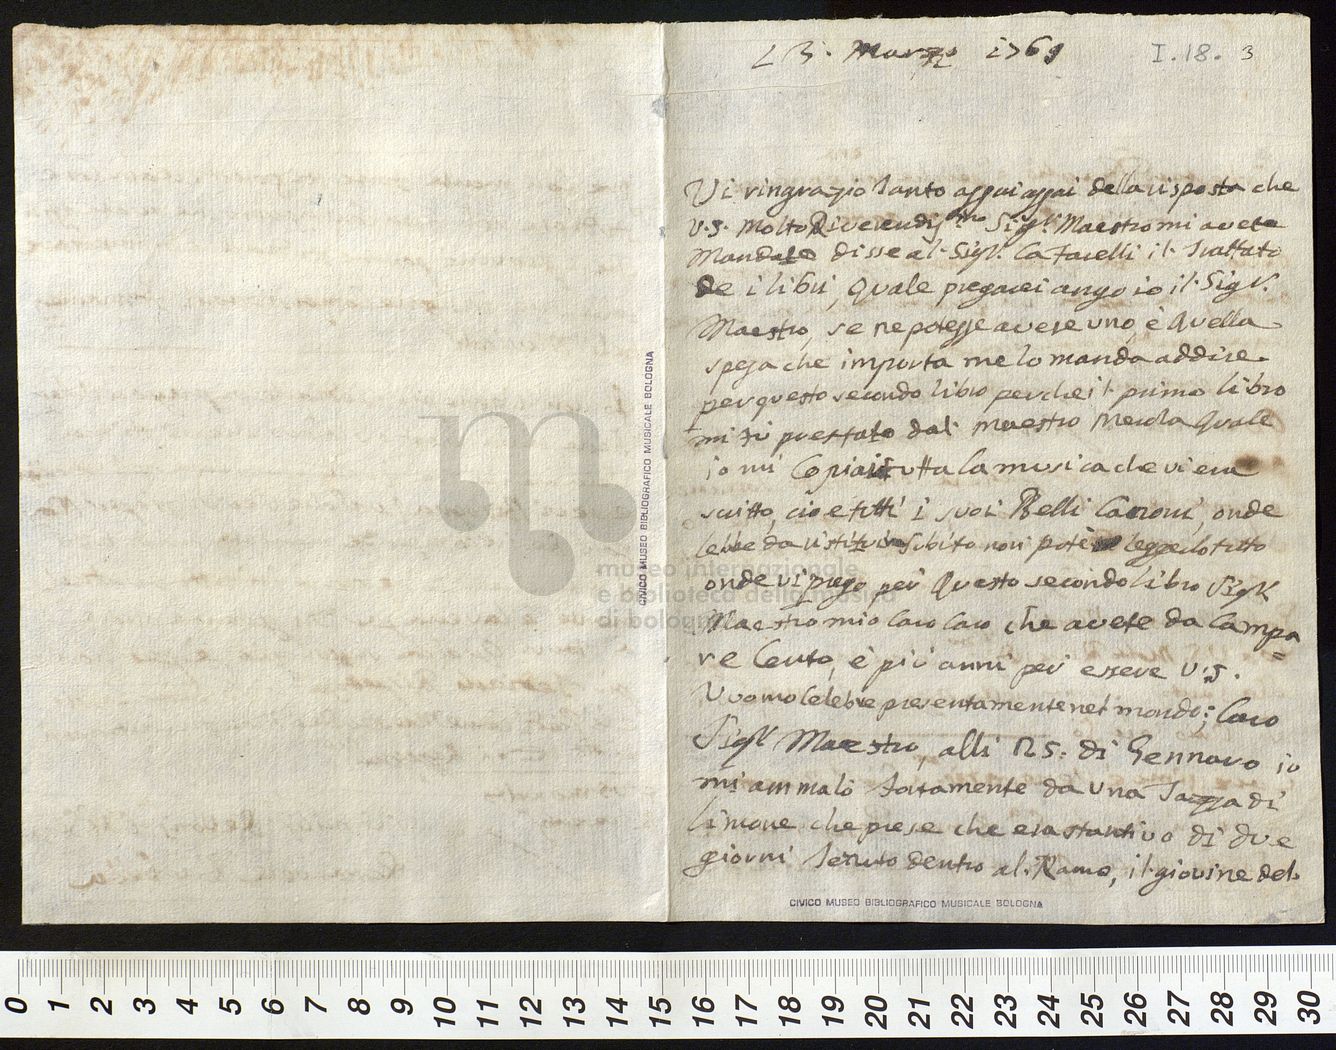 L 3. Marzo 1769
I.18. 3
Vi ringrazio tanto assai assai della risposta che
V.S. Molto Riverendiss.mo Sig.r Maestro mi avete
Mandato disse al Sig.r Cafarelli il Trattato
de i libri, quale pregarei ancho io il Sig.r
Maestro, se ne potesse avere uno, è quella
spesa che importa me lo manda a ddire
per questo secondo libro perche il primo libro
mi fù prestato dal Maestro Merola quale
io mi Copiai tutta la musica che vi era
scritto, cioè tutti i suoi Belli Canoni, onde
lebbe da ristituire subito non potei leggerlo tutto
onde vi prego per questo secondo libro Sig.r
Maestro mio Caro Caro che avete da Campa=
re Cento, è più anni per essere V.S.
Vuomo Celebre presentamente nel mondo; Caro
Sig.r Maestro, alli 25. di Gennaro io
mi ammalò fortamente da una Tazza di
limone che prese che era stantivo di due
giorni tenuto dentro al Ramo, il giovine del
CIVICO MUSEO BIBLIOGRAFICO MUSICALE BOLOGNA
CIVICO MUSEO BIBLIOGRAFICO MUSICALE BOLOGNA
museo internazionale
e biblioteca della musica
di bologna
0 1 2 3 4 5 6 7 8 9 10 11 12 13 14 15 16 17 18 19 20 21 22 23 24 25 26 27 28 29 30